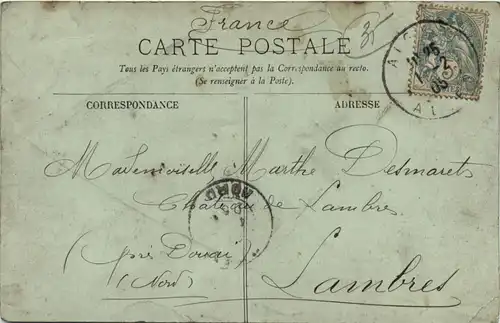 France
31
CARTE POSTALE
Tous les Pays étrangers n'acceptent pas la Correspondance au recto.
(Se renseigner à la Poste).
CORRESPONDANCE
ADRESSE
Mademoiselle Marthe Desmarets
Chateau de Lambres
(près Douai)
Lambres
(Nord)
NORD